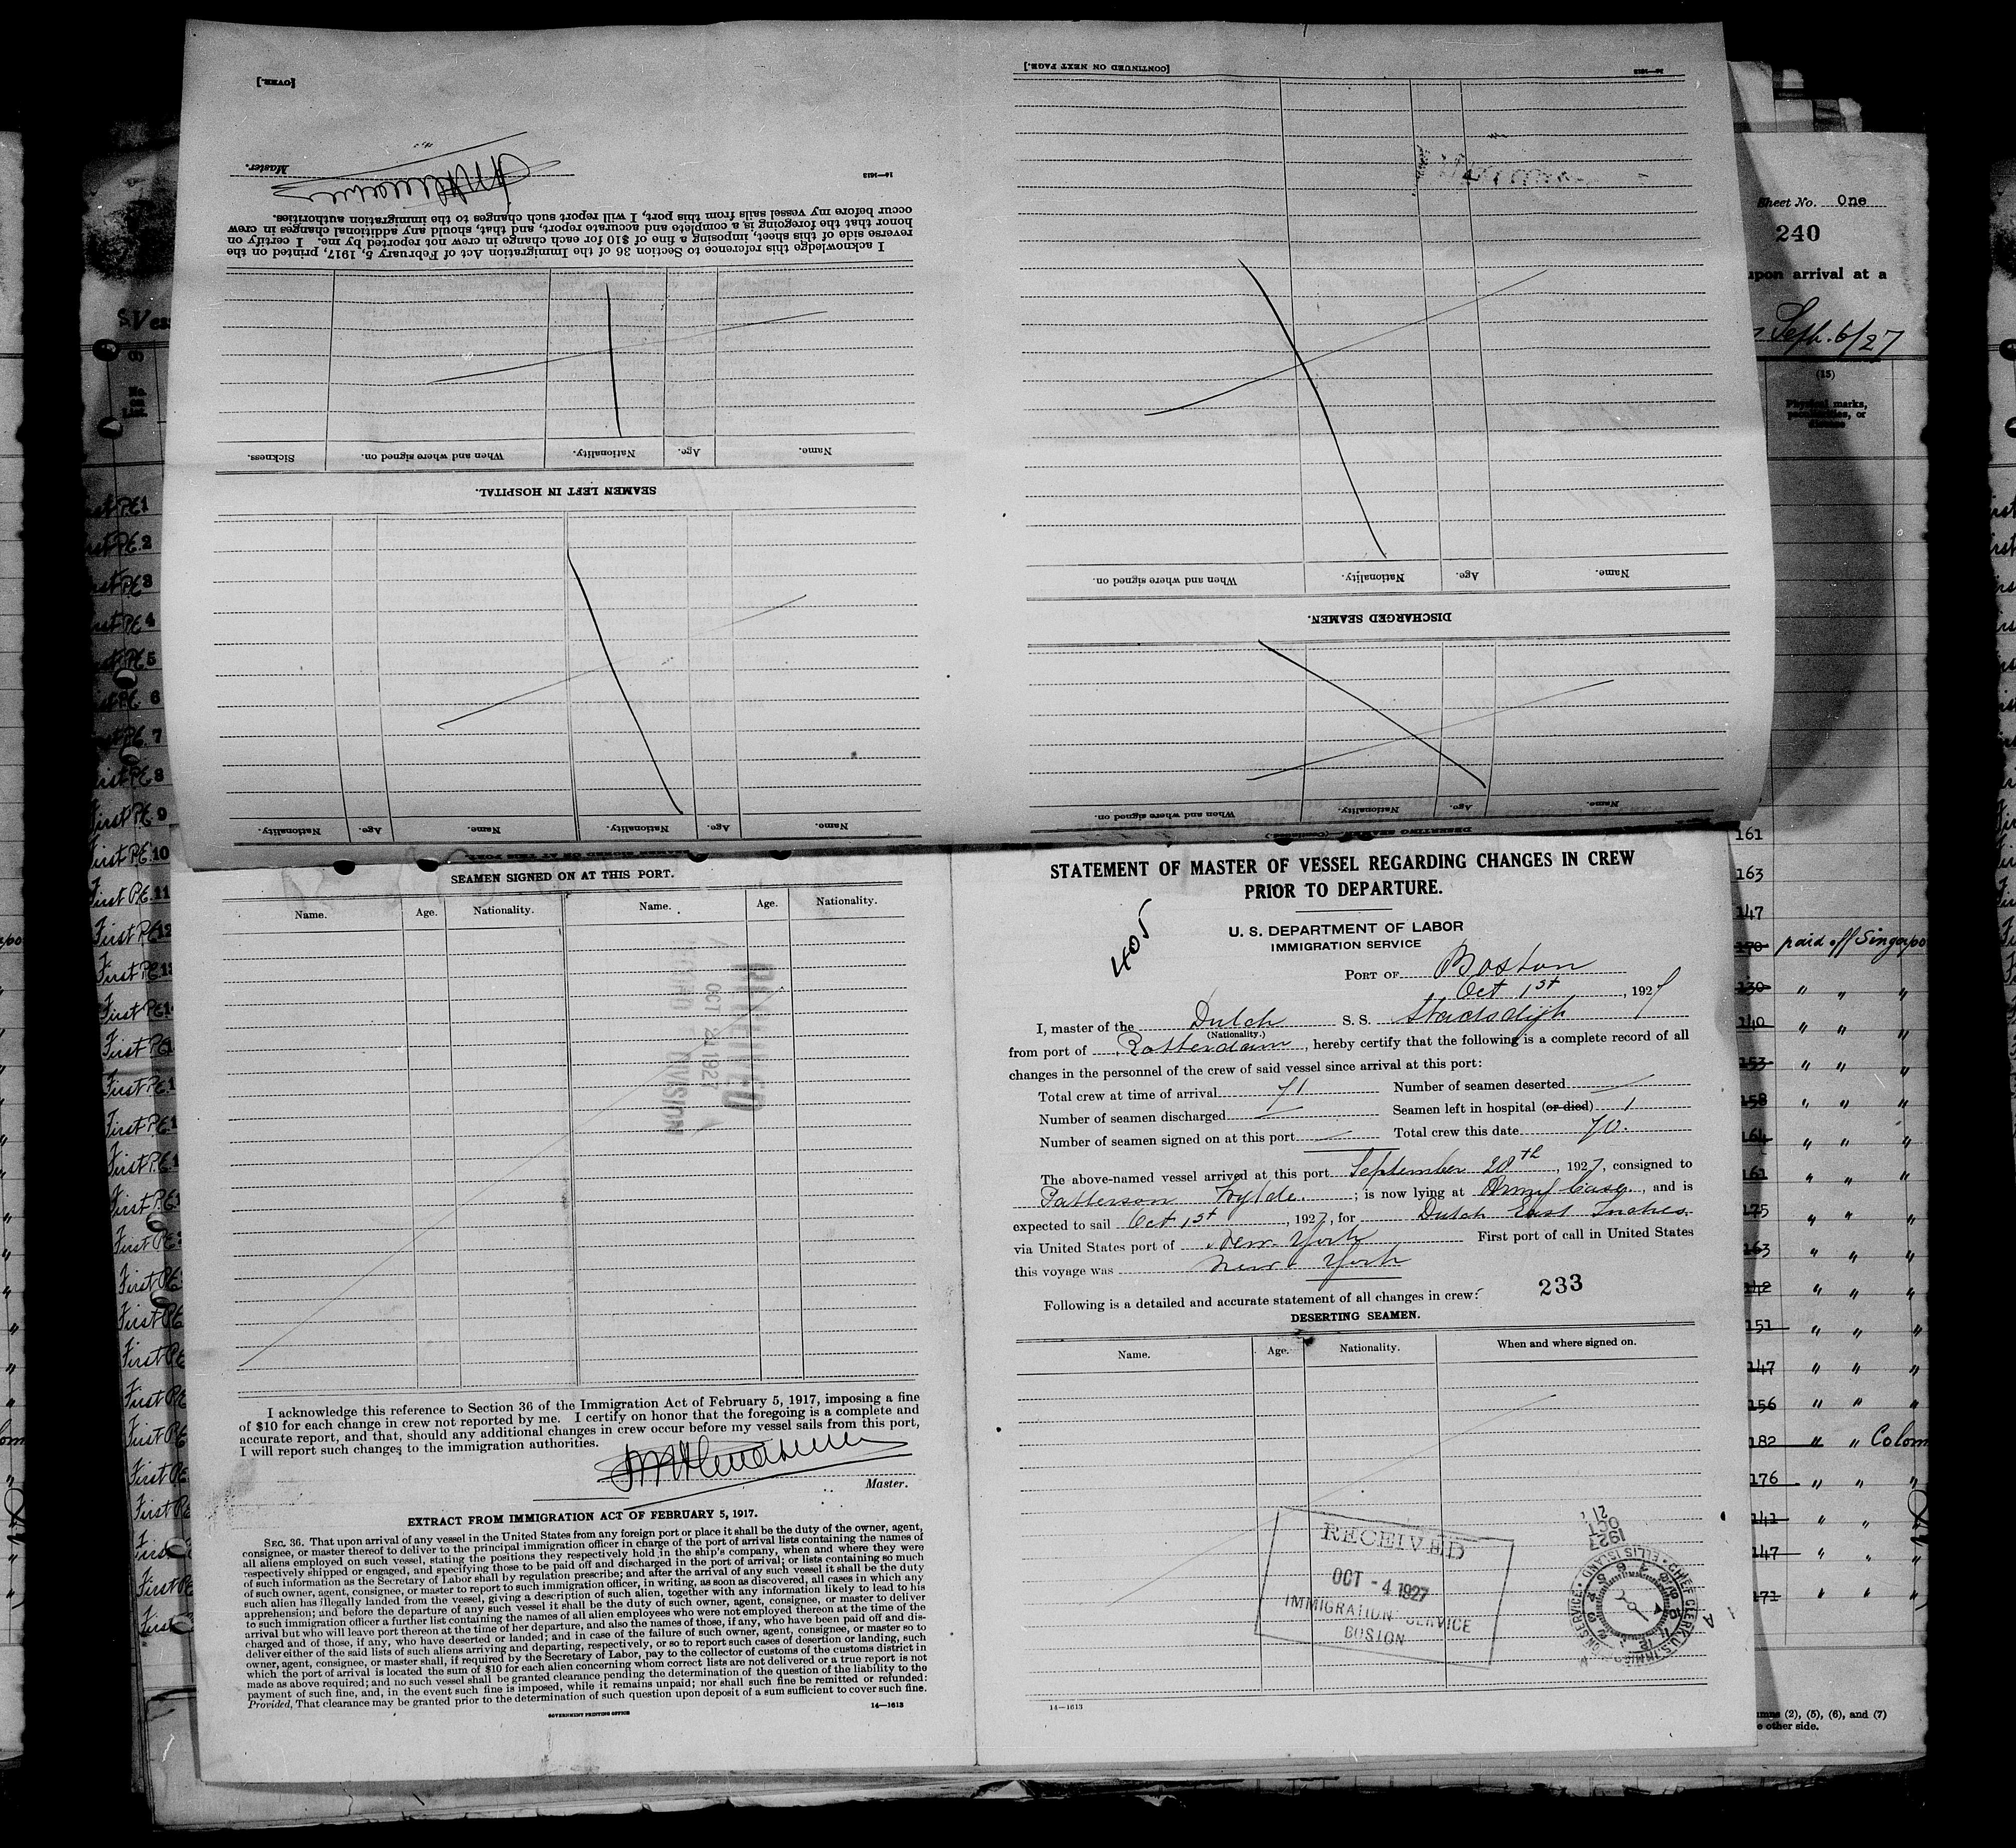 [OVER.]
Master.
14—1613
I acknowledge this reference to Section 36 of the Immigration Act of February 5, 1917, printed on the
reverse side of this sheet, imposing a fine of $10 for each change in crew not reported by me. I certify on
honor that the foregoing is a complete and accurate report, and that, should any additional changes in crew
occur before my vessel sails from this port, I will report such changes to the immigration authorities.
Name. Age. Nationality. When and where signed on. Sickness.
SEAMEN LEFT IN HOSPITAL.
Name. Age. Nationality. Name. Age. Nationality.
SEAMEN SIGNED ON AT THIS PORT.
[CONTINUED ON NEXT PAGE.]
14—1613
Name. Age. Nationality. When and where signed on.
DISCHARGED SEAMEN.
Name. Age. Nationality. When and where signed on.
DESERTING SEAMEN (Continued.)
SEAMEN SIGNED ON AT THIS PORT.
Name. Age. Nationality. Name. Age. Nationality.
OCT 1927
DIVISION
I acknowledge this reference to Section 36 of the Immigration Act of February 5, 1917, imposing a fine
of $10 for each change in crew not reported by me. I certify on honor that the foregoing is a complete and
accurate report, and that, should any additional changes in crew occur before my vessel sails from this port,
I will report such changes to the immigration authorities.
Master.
EXTRACT FROM IMMIGRATION ACT OF FEBRUARY 5, 1917.
SEC. 36. That upon arrival of any vessel in the United States from any foreign port or place it shall be the duty of the owner, agent,
consignee, or master thereof to deliver to the principal immigration officer in charge of the port of arrival lists containing the names of
all aliens employed on such vessel, stating the positions they respectively hold in the ship's company, when and where they were
respectively shipped or engaged, and specifying those to be paid off and discharged in the port of arrival; or lists containing so much
of such information as the Secretary of Labor shall by regulation prescribe; and after the arrival of any such vessel it shall be the duty
of such owner, agent, consignee, or master to report to such immigration officer, in writing, as soon as discovered, all cases in which any
such alien has illegally landed from the vessel, giving a description of such alien, together with any information likely to lead to his
apprehension; and before the departure of any such vessel it shall be the duty of such owner, agent, consignee, or master to deliver
to such immigration officer a further list containing the names of all alien employees who were not employed thereon at the time of the
arrival but who will leave port thereon at the time of her departure, and also the names of those, if any, who have been paid off and dis-
charged and of those, if any, who have deserted or landed; and in case of the failure of such owner, agent, consignee, or master so to
deliver either of the said lists of such aliens arriving and departing, respectively, or so to report such cases of desertion or landing, such
owner, agent, consignee, or master shall, if required by the Secretary of Labor, pay to the collector of customs of the customs district in
which the port of arrival is located the sum of $10 for each alien concerning whom correct lists are not delivered or a true report is not
made as above required; and no such vessel shall be granted clearance pending the determination of the question of the liability to the
payment of such fine, and, in the event such fine is imposed, while it remains unpaid; nor shall such fine be remitted or refunded:
Provided, That clearance may be granted prior to the determination of such question upon deposit of a sum sufficient to cover such fine.
GOVERNMENT PRINTING OFFICE 14—1613
STATEMENT OF MASTER OF VESSEL REGARDING CHANGES IN CREW
PRIOR TO DEPARTURE.
405
U. S. DEPARTMENT OF LABOR
IMMIGRATION SERVICE
PORT OF Boston
Oct 1st, 1927
I, master of the Dutch S. S. Stadsdijk
(Nationality.)
from port of Rotterdam, hereby certify that the following is a complete record of all
changes in the personnel of the crew of said vessel since arrival at this port:
Total crew at time of arrival 71 Number of seamen deserted —
Number of seamen discharged — Seamen left in hospital (or died) 1
Number of seamen signed on at this port — Total crew this date 70.
The above-named vessel arrived at this port September 28th, 1927, consigned to
Patterson Wylde.; is now lying at Army base, and is
expected to sail Oct 1st, 1927, for Dutch East Indies.
via United States port of New York First port of call in United States
this voyage was New York
Following is a detailed and accurate statement of all changes in crew: 233
DESERTING SEAMEN.
Name. Age. Nationality. When and where signed on.
RECEIVED
OCT - 4 1927
IMMIGRATION SERVICE
BOSTON
1927
OCT
21
CHIEF CLERK U.S. IMMIGRATION SERVICE • ELLIS ISLAND •
14—1613
Sheet No. One
240
upon arrival at a
Sept. 6/27
(15)
Physical marks,
peculiarities, or
disease
161
163
147
170 paid off Singapo
130 " " "
140 " " "
153 " " "
158 " " "
164 " " "
161 " " "
175 " " "
163 " " "
142 " " "
151 " " "
147 " " "
156 " " "
182 " " Colom
176 " " "
141 " " "
147 " " "
171 " " "
umns (2), (5), (6), and (7)
e other side.